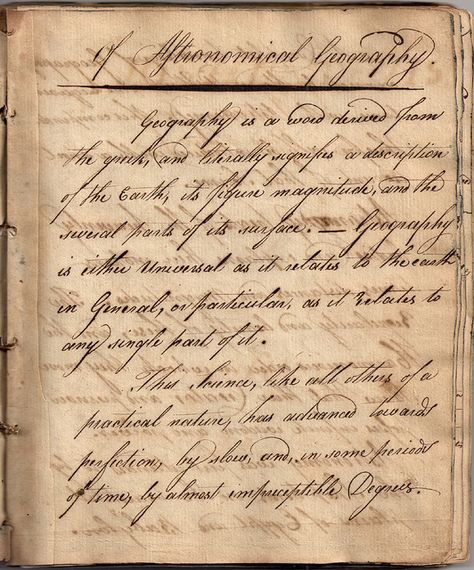 Of Astronomical Geography.
Geography is a word derived from
the greek, and literally signifies a description
of the Earth, its figure magnitude, and the
several parts of its surface. — Geography
is either Universal as it relates to the earth
in General, or particular, as it relates to
any single part of it.
This Science, like all others of a
practical nature, has advanced towards
perfection, by slow, and, in some periods
of time, by almost impreceptible Degrees.